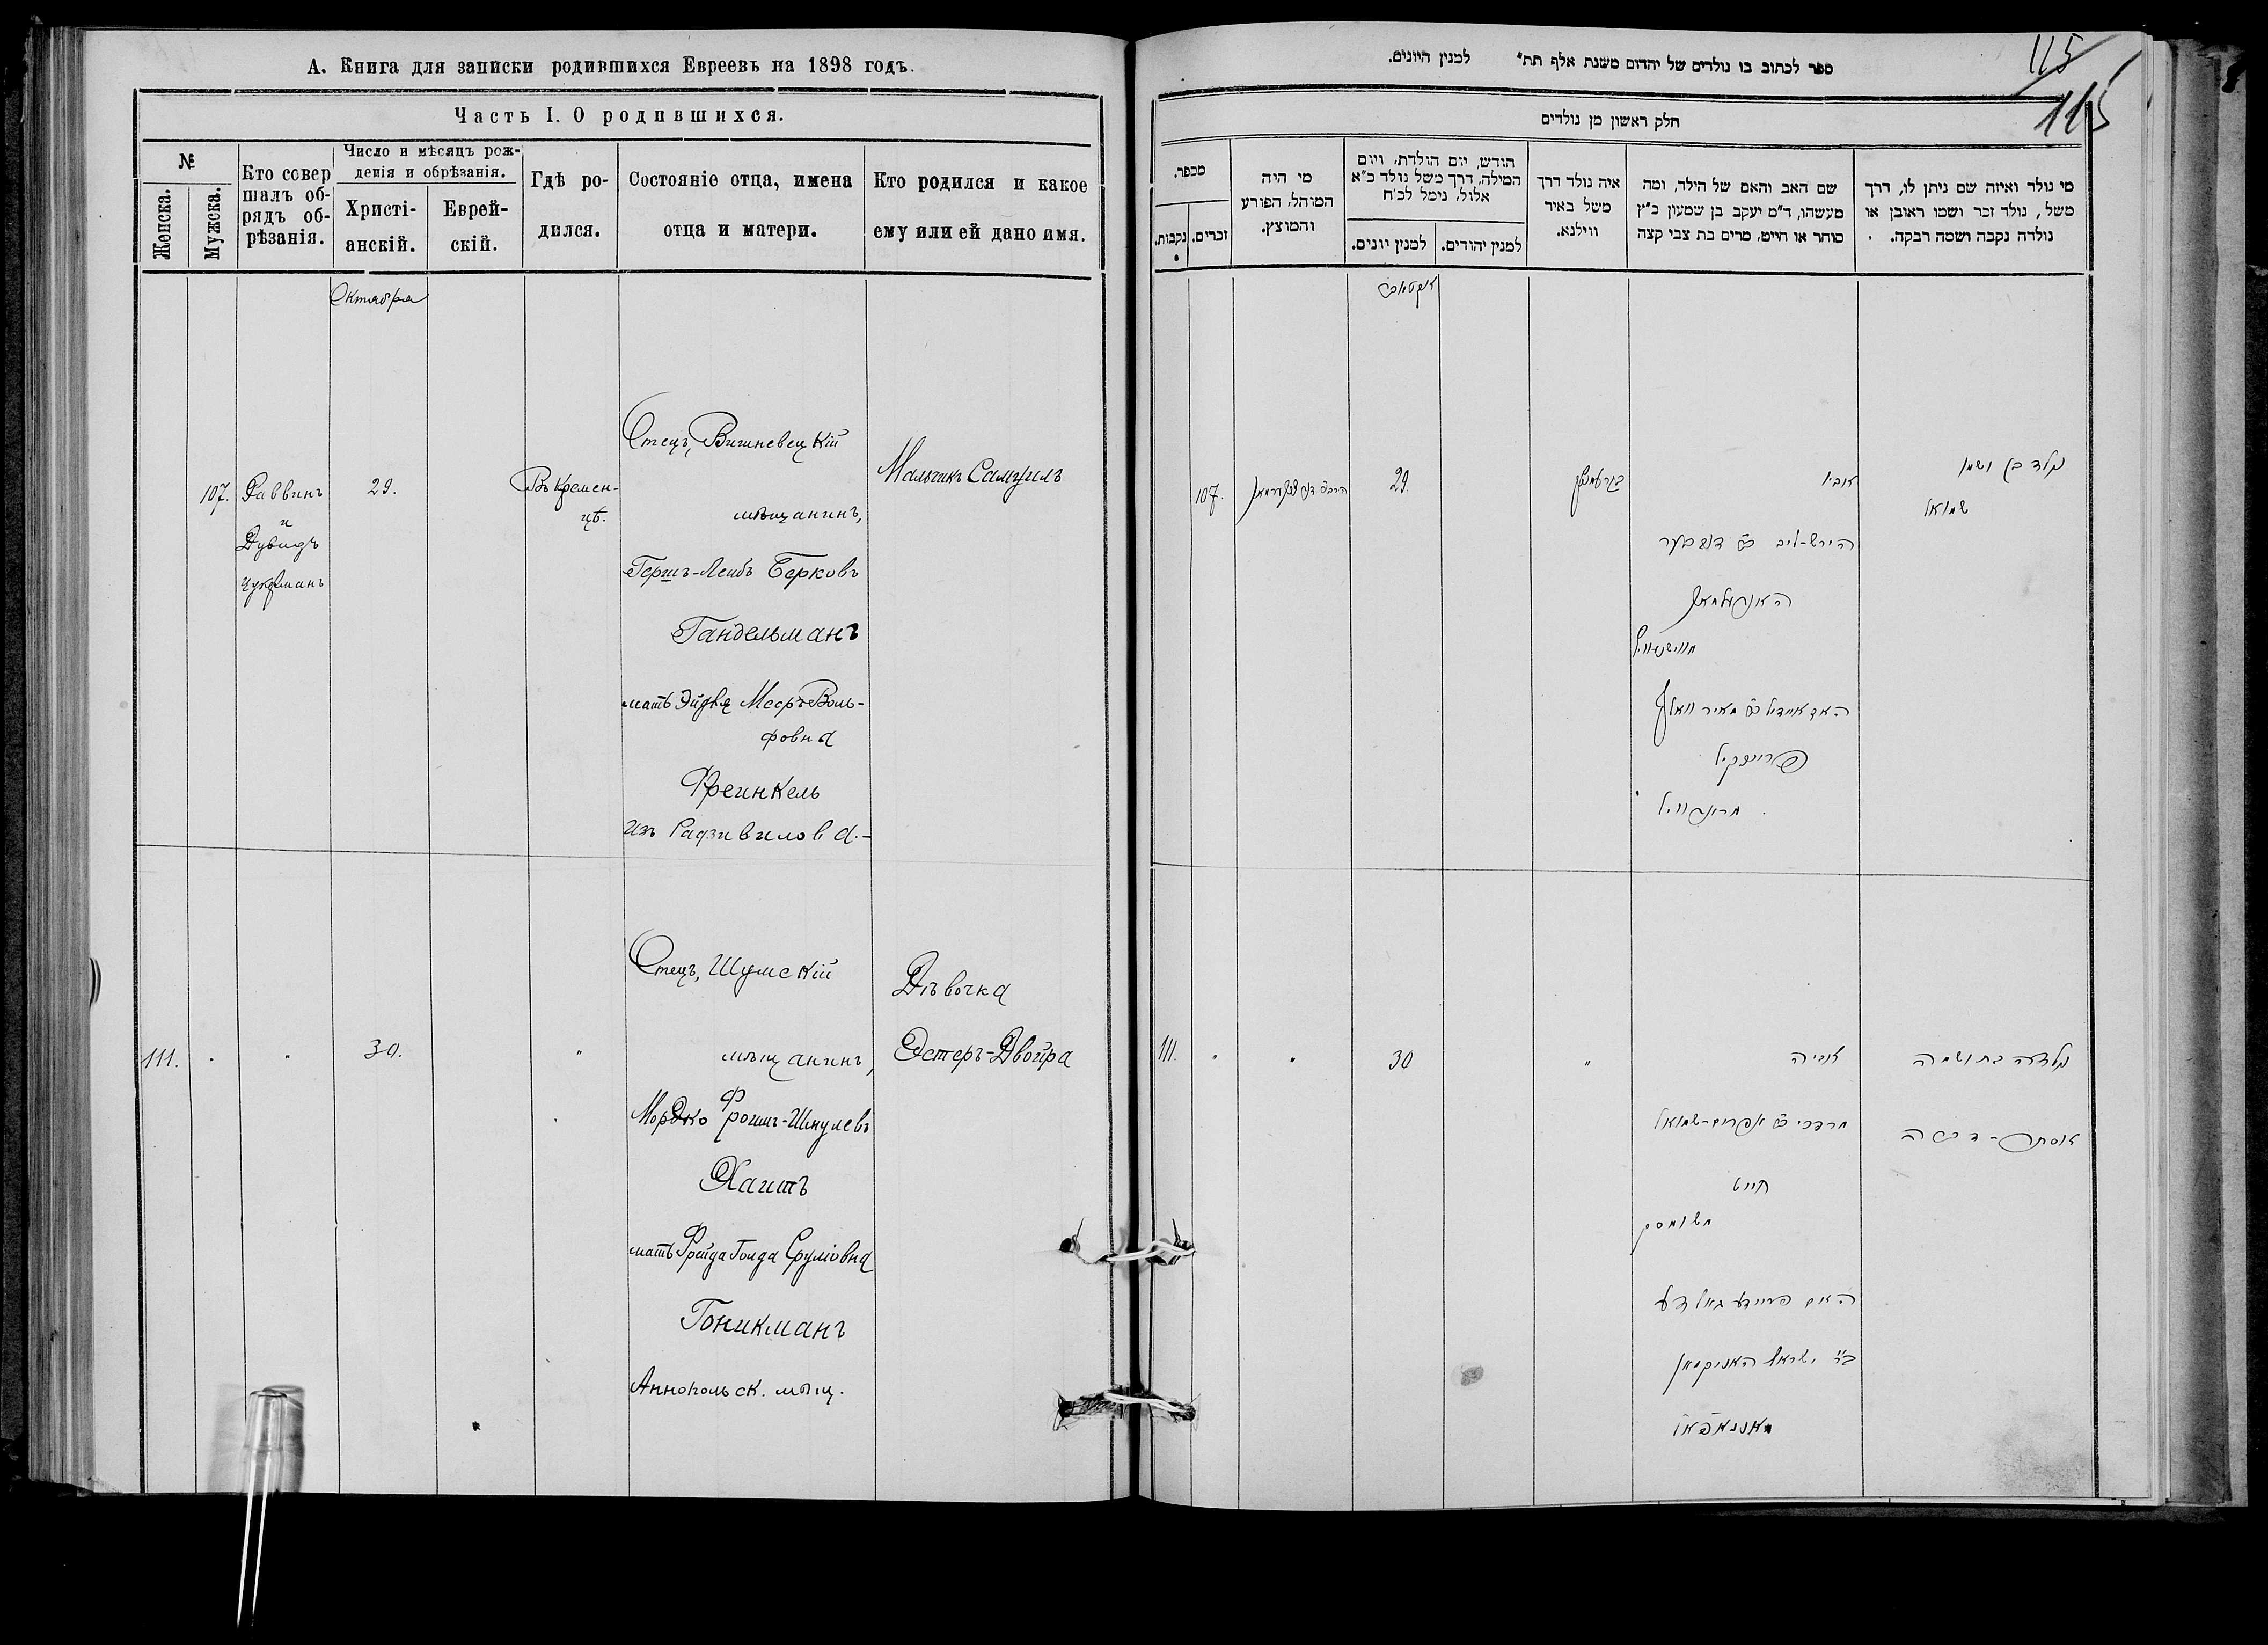 А. Книга для записки родившихся Евреевъ на 1898 годъ.
Часть I. О родившихся.
№
Женска.
Мужска.
Кто совер
шалъ об-
рядъ об-
рѣзанія.
Число и мѣсяцъ рож-
денія и обрѣзанія.
Христі-
анскій.
Еврей-
скій.
Гдѣ ро-
дился.
Состояніе отца, имена
отца и матери.
Кто родился и какое
ему или ей дано имя.
Октября
107.
Раввинъ
и
Дувидъ
Цукерманъ
29.
Въ Кремен-
цѣ.
Отецъ, Вишневецкій
мѣщанинъ,
Гершъ-Лейбъ Берковъ
Гандельманъ
мать Эйдля Мееръ Воль-
фовна
Фреинкель
изъ Радзивилова.-
Мальчикъ Самуилъ
111.
"
"
30.
"
Отецъ, Шумскій
мѣщанинъ,
Мордко Фроимъ-Шмулевъ
Хаитъ
мать Фрейда Голда Сруліовна
Гоникманъ
Аннопольск. мѣщ.
Дѣвочка
Эстеръ-Двойра
ספר לכתוב בו נולדים של יהדום משנת אלף תת״ למנין היונים.
115
115
חלק ראשון מן נולדים
מכפר.
נקבות.
זכרים.
מי היה
המוהל, הפורע
והמוצץ.
הודש, יום הולדת, ויום
המילה, דרך משל נולד כ״א
אלול, נימל לכ״ח
למנין יונים.
למנין יהודים.
איה נולד דרך
משל באיר
ווילנא.
שם האב והאם של הילד, ומה
מעשהו, ד״מ יעקב בן שמעון כ״ץ
סוחר או חייט, מרים בת צבי קצה
מי נולד ואיזה שם ניתן לו, דרך
משל, נולד זכר ושמו ראובן או
נולדה נקבה ושמה רבקה.
107.
29.
אביו
הירש-ליב
האנדלמאן
מאיר וואלף
נולד בן ושמו
שמואל
111.
"
"
30
"
אביה
מרדכי אפרים-שמואל
חייט
משומסק
האם פריידע גאלדע
ישראל האניקמאן
נולדה בת ושמה
אסתר-דבורה